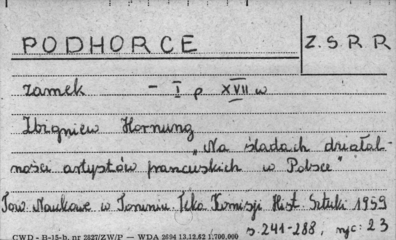 PODHORCE
Z.S.R.R
zamek - I p XVII w
Zbigniew Hornung
„Na śladach działal-
ności artystów francuskich w Polsce"
Tow Naukowe w Toruniu Teka Komisji Hist. Sztuki 1959
s. 244-288, ryc: 23
CWD - B-15-b. nr 2827/ZW/P — WDA 2694 13.12.62 1.700.000